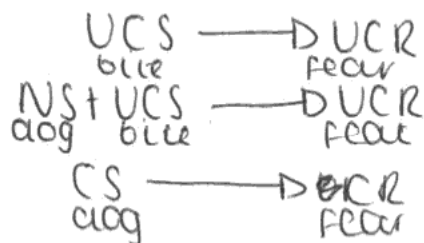 UCS → UCR
bite fear
NS + UCS → UCR
dog bite fear
CS → CR
dog fear